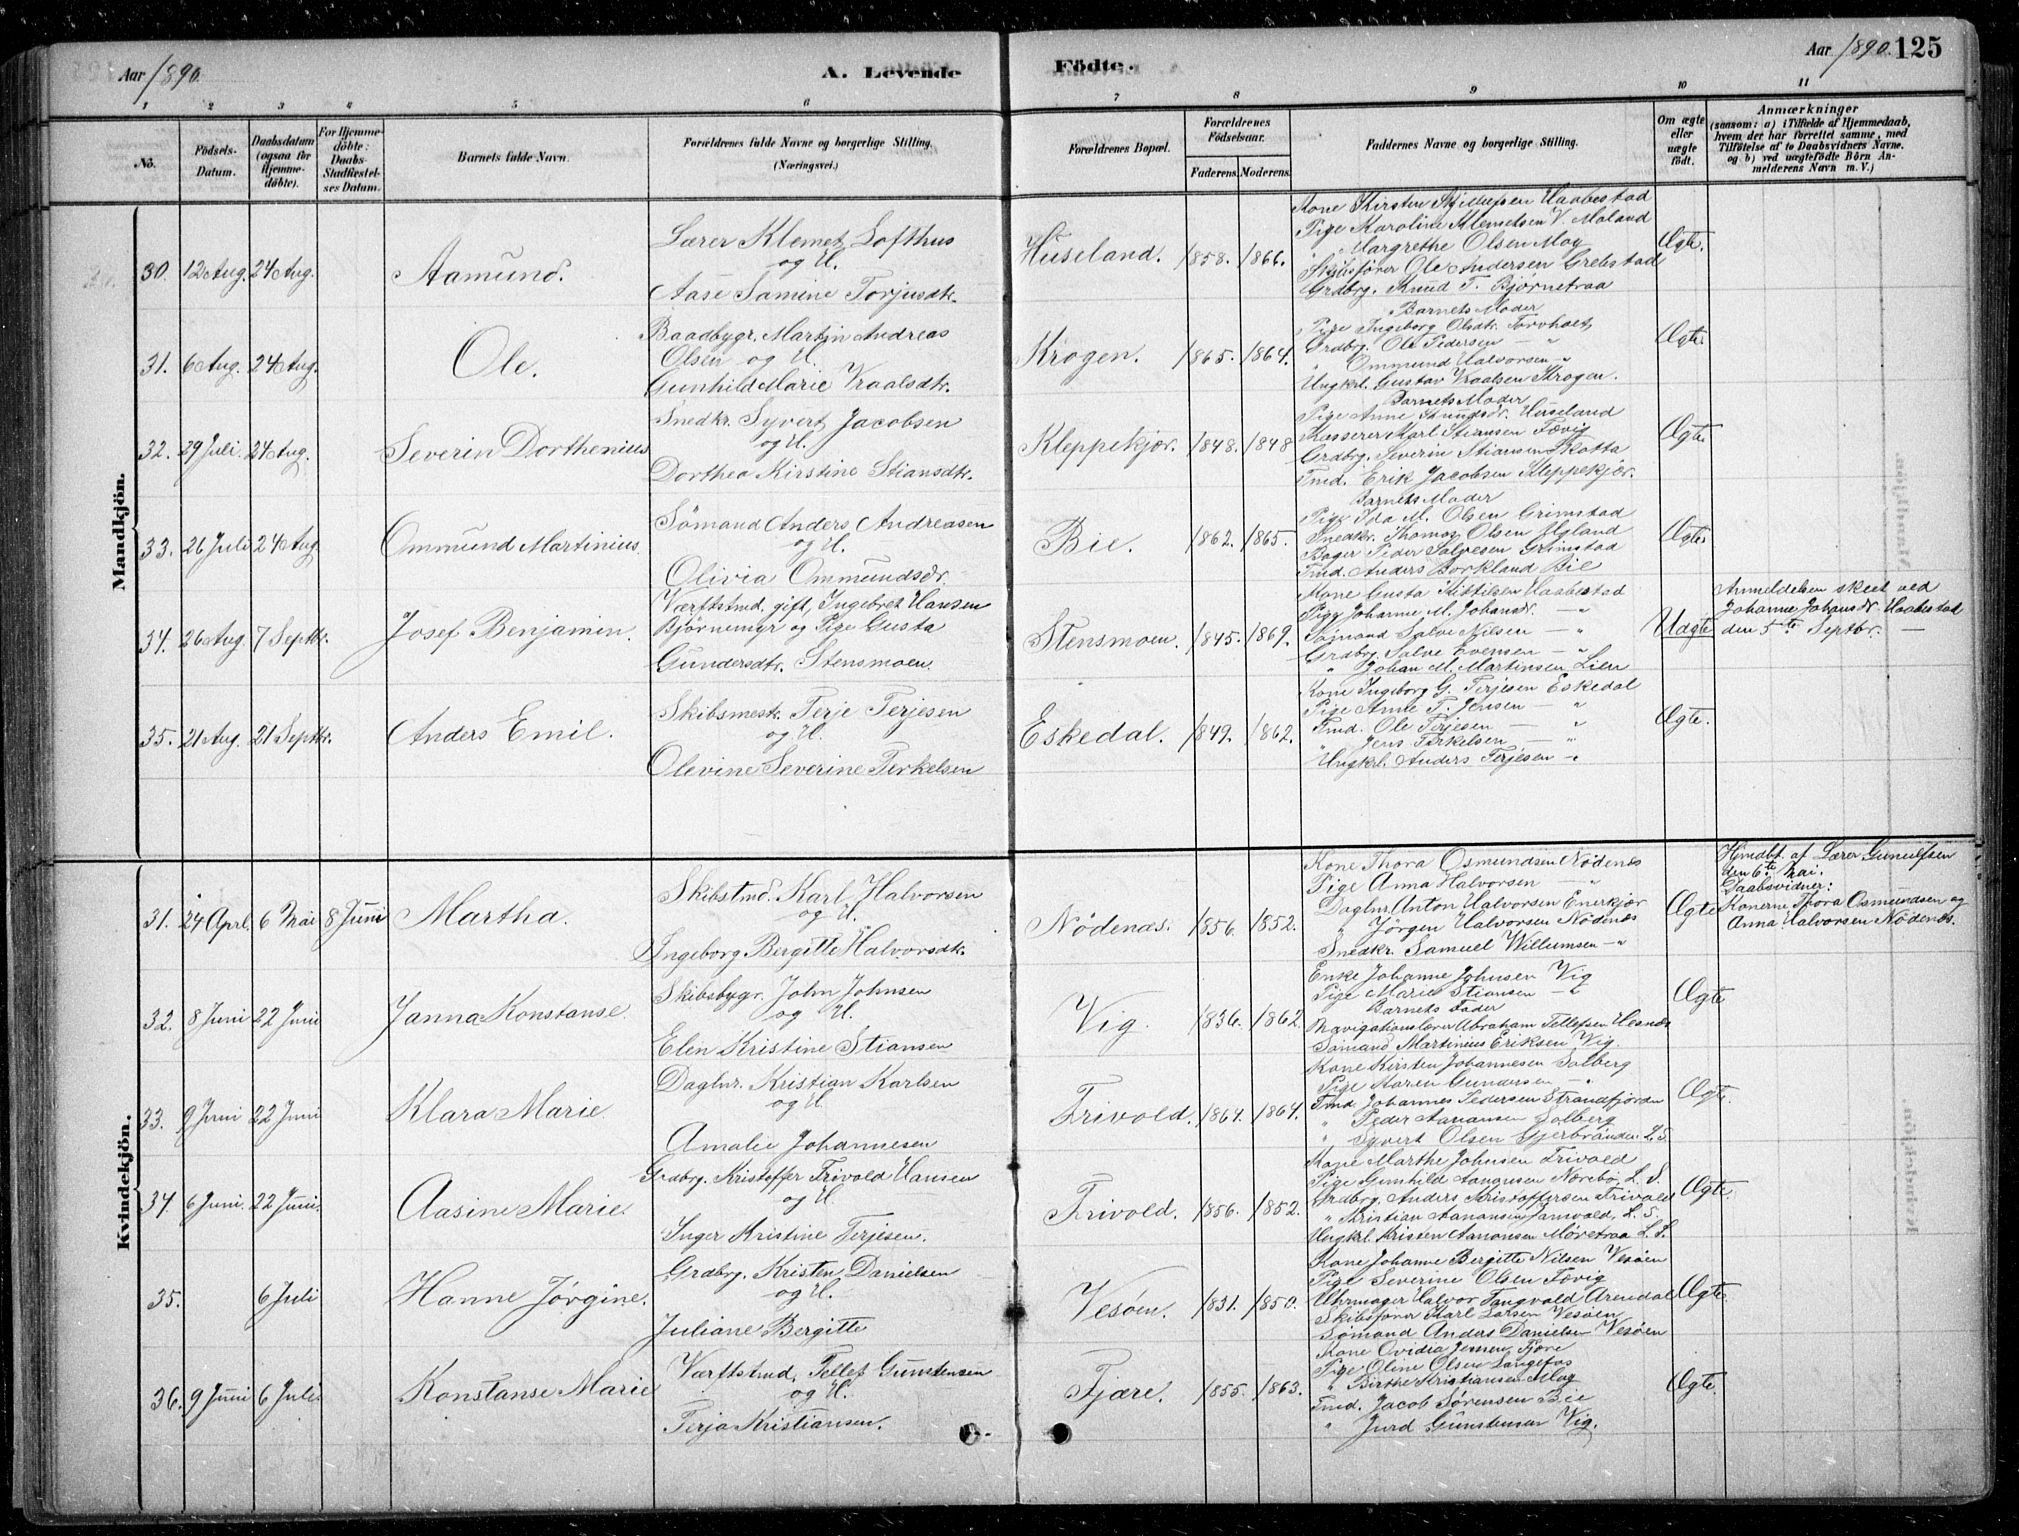 Aar 1890.
A. Levende
Födte.
Aar 1890. 125
1 2 3 4 5 6 7 8 9 10 11
No.
Födsels-Datum.
Daabsdatum (ogsaa for Hjemmedöbte).
For Hjemmedöbte: Daabs-Stadfæstelses Datum.
Barnets fulde Navn.
Forældrenes fulde Navne og borgerlige Stilling. (Næringsvei.)
Forældrenes Bopæl.
Forældrenes Födselsaar.
Faderens. Moderens.
Faddernes Navne og borgerlige Stilling.
Om ægte eller uægte födt.
Anmærkninger
(saasom: a) i Tilfælde af Hjemmedaab,
hvem der har forrettet samme, med
Tilföielse af to Daabsvidners Navne.
og b) ved uægtefödte Börn An-
melderens Navn m. V.)
Mandkjön.
30. 12 Aug. 24 Aug. Aamund.
Lærer Klemet Lofthus
og H.
Aase Samine Torjusdtr.
Huseland. 1858. 1866.
Pige Karoline Klemetsen V. Moland
" Margrethe Olsen Moy
Skibsfører Ole Andersen Grebstad
Grdbrg. Knud T. Bjørnetraa
Barnets Moder
Ægte.
31. 6 Aug. 24 Aug. Ole.
Baadbygr. Martin Andreas
Olsen og H.
Gunhild Marie Vraalsdtr.
Krogen. 1865. 1864.
Pige Ingeborg Olsdtr. Torvholt
Grdbrg. Ole Pedersen — "
" Ommund Halvorsen "
Ungkrl. Gustav Vraalsen Krogen.
Barnets Moder
Ægte.
32. 29 Juli. 24 Aug. Severin Dorthenius
Snedkr. Syvert Jacobsen
og H.
Dorthea Kirstine Stiansdtr.
Kleppekjær. 1848. 1848
Pige Anne Knudsdr. Huseland
Kasserer Karl Stiansen Fævig
Grdbrg. Severin Stiansen Skotta
Tmd. Erik Jacobsen Kleppekjær.
Barnets Moder
Ægte
33. 26 Juli 24 Aug Ommund Martinius.
Sömand Anders Andreasen
og H.
Olivia Ommundsdr.
Bie. 1862. 1865.
Pige Ida M. Olsen Grimstad
Snedkr. Thomas Olsen Ugland
Bager Peder Salvesen Grimstad
Tmd. Anders Borkland Bie
Ægte
34. 26 Aug. 7 Septbr. Josef Benjamin.
Værftstmd. gift, Ingebret Hansen
Bjørnemyr og Pige Gusta
Gundersdtr. Stensmoen.
Stensmoen. 1845. 1869.
Kone Gusta Kittilsen Haabestad
Pige Johanne M. Johansdr. — "
Sømand Salve Nilsen — "
Grdbrg. Salve Evensen — "
" Johan M. Martinsen Lien
Uægte
Anmeldelsen skeet ved
Johanne Johansdr. Haabestad
den 5te Septbr. —
35. 21 Aug. 21 Septbr. Anders Emil.
Skibsmestr. Terje Terjesen
og H.
Olevine Severine Terkelsen
Eskedal. 1849. 1862.
Kone Ingeborg G. Terjesen Eskedal
Pige Anne T. Jensen — "
Tmd. Ole Terjesen — "
" Jens Terkelsen — "
Ungkrl. Anders Terjesen — "
Ægte.
Kvindekjön.
31. 24 Aprl. 6 Mai 8 Juni Martha.
Skibstmd. Karl Halvorsen
og H.
Ingeborg Bergitte Halvorsdtr.
Nødenæs. 1856. 1852.
Kone Thora Osmundsen Nødenæs
Pige Anna Halvorsen — "
Daglnr. Anton Halvorsen Enerkjær
" Jörgen Halvorsen Nödenæs
Snedkr. Samuel Willumsen — "
Ægte
Hjmdbt. af Lærer Gunulfsen
den 6te Mai.
Daabsvidner:
Konerne Thora Osmundsen og
Anna Halvorsen Nödenæs.
32. 8 Juni 22 Juni Janna Konstanse.
Skibsbygr. John Johnsen
og H.
Elen Kristine Stiansen
Vig. 1836. 1862
Enke Johanne Johnsen Vig
Pige Marie Stiansen — "
Barnets Fader
Navigationslærer Abraham Tellefsen Hesnæs
Sømand Martinius Eriksen Vig
Ægte
33. 9 Juni 22 Juni Klara Marie
Daglnr. Kristian Karlsen
og H
Amalie Johannesen
Frivold. 1864. 1864.
Kone Kirsten Johannesen Solberg
Pige Maren Gundersen — "
Tmd. Johannes Pedersen Strandfjorden
" Peder Aanansen Solberg
" Syvert Olsen Gjerbrånden L. S.
Ægte.
34. 6 Juni. 22 Juni. Aasine Marie.
Grdbrg. Kristoffer Frivold Hansen
og H.
Inger Kristine Terjesen.
Frivold. 1856. 1852.
Kone Marthe Johnsen Frivold
Pige Gunhild Aanansen Nærebø L. S.
Grdbrg. Anders Kristoffersen Frivold
" Kristian Aanonsen Jamvold, L. S.
Ungkrl. Kristen Aanonsen Møretraa L. S.
Ægte.
35. 6 Juli Hanne Jørgine.
Grdbrg. Kristen Danielsen
og H.
Juliane Bergitte
Vesøen. 1831. 1850.
Kone Johanne Bergitte Nilsen Vesøen
Pige Severine Olsen Fævig
Uhrmager Halvor Tangvald Arendal
Skibsfører Karl Larsen Vesøen
Sømand Anders Danielsen Vesøen
Ægte.
36. 9 Juni 6 Juli. Konstanse Marie
Værftstmd. Tellef Gunstensen
og H.
Terja Kristiansen.
Fjære. 1855. 1863.
Kone Ovidia Jensen Fjære
Pige Oline Olsen Langefos
" Birthe Kristiansen Moy
Tmd. Jacob Sørensen Bie
" Jurd Gunstensen Vig.
Ægte.